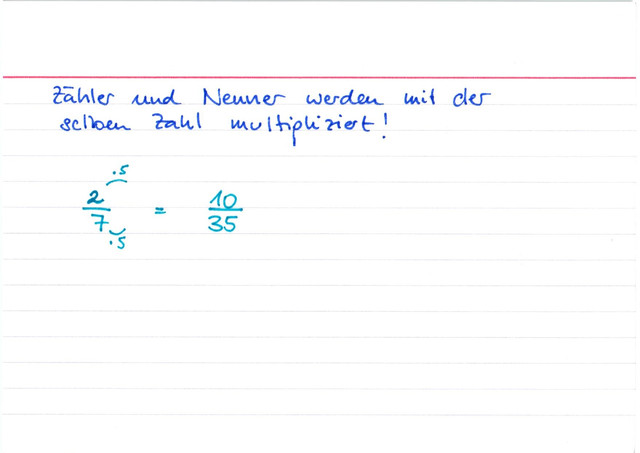 Zähler und Nenner werden mit der
selben Zahl multipliziert!
·5
2/7 = 10/35
·5